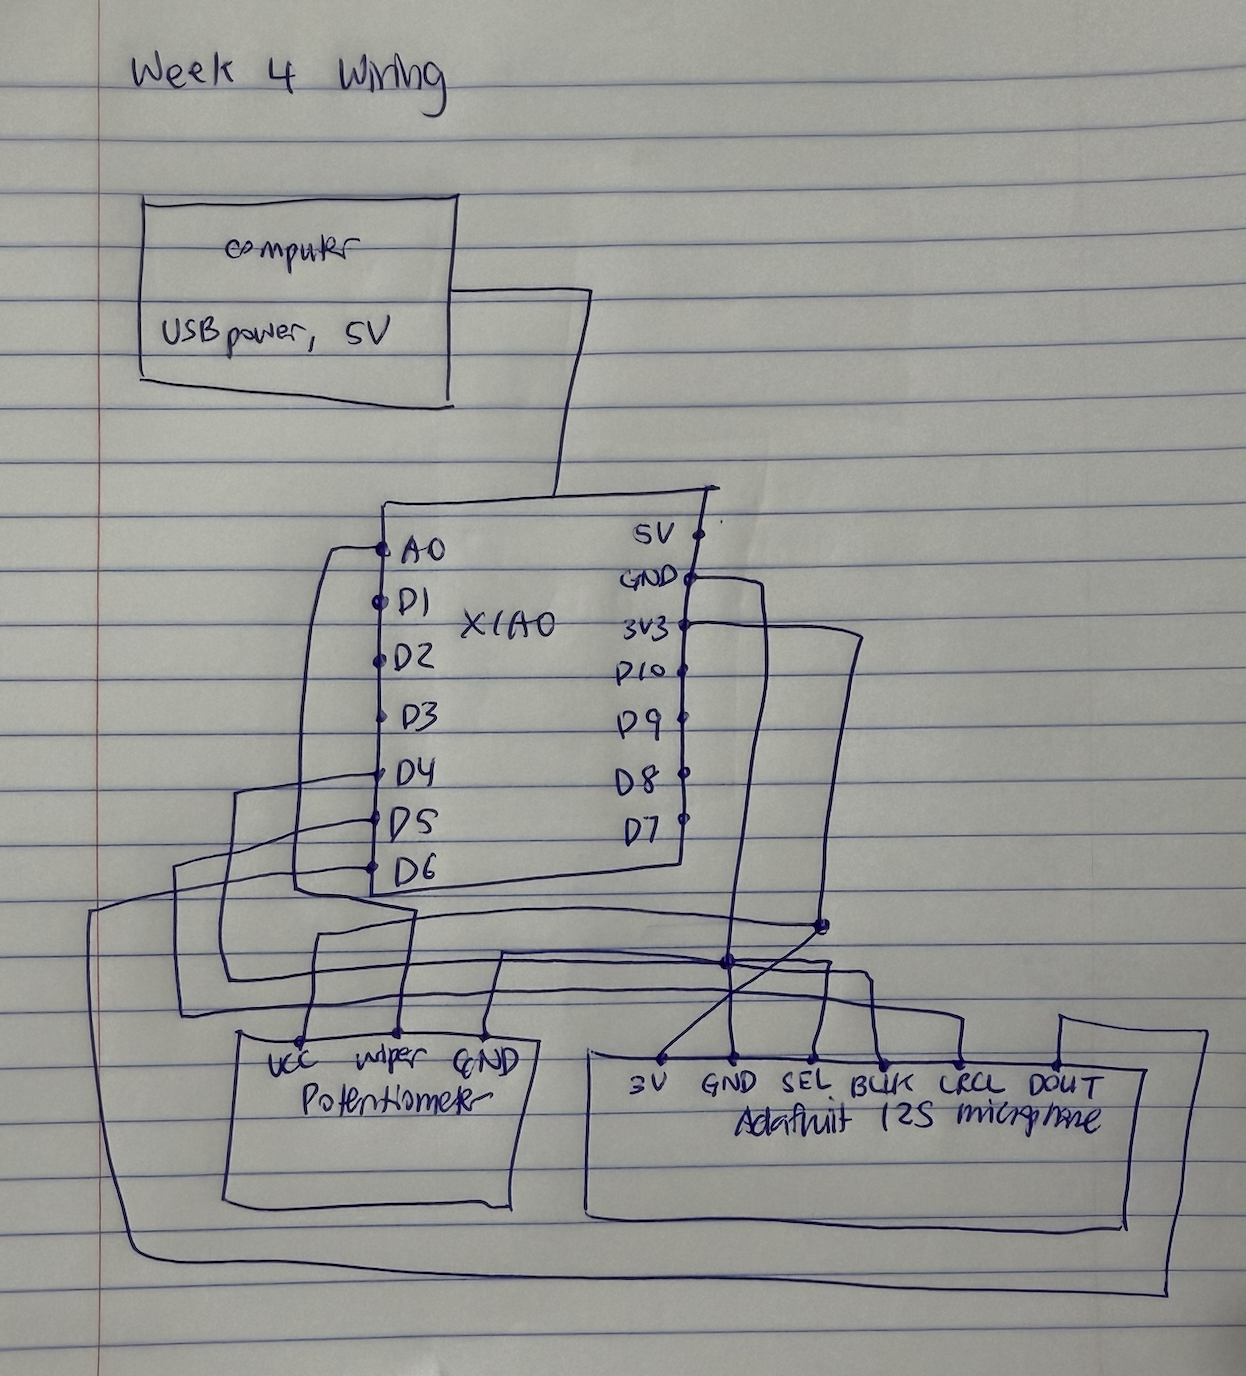 Week 4 Wiring
computer
USB power, 5V
A0
D1
D2
D3
D4
D5
D6
XIAO
5V
GND
3V3
D10
D9
D8
D7
VCC wiper GND
Potentiometer
3V GND SEL BCLK LRCL DOUT
Adafruit I2S microphone